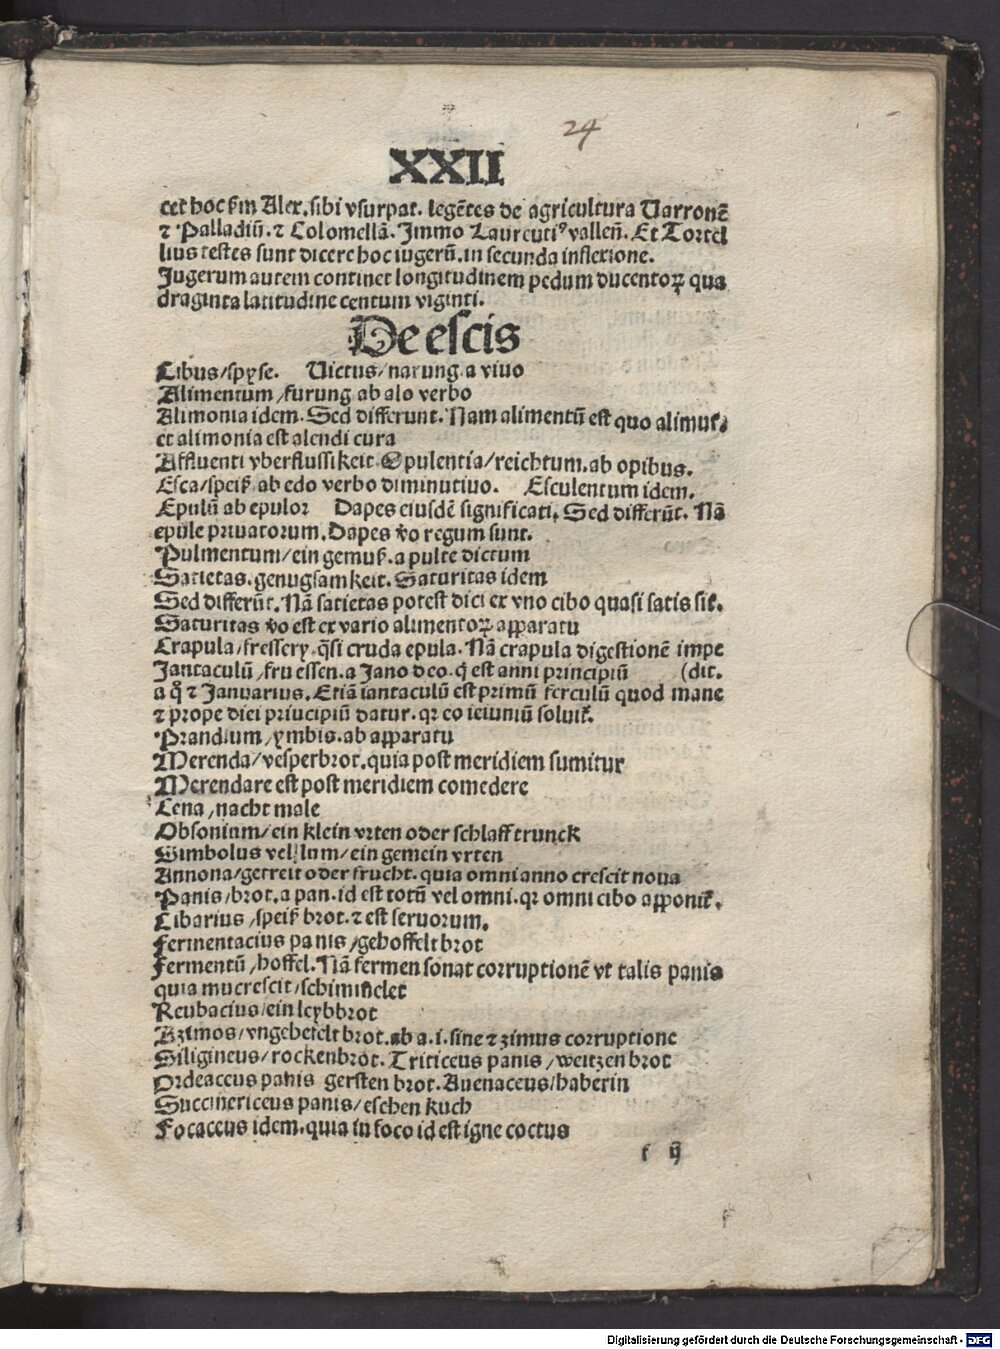 24
XXII
cet hoc ẜm Alex. sibi vsurpat. legētes de agricultura Varronē
⁊ Palladiū. ⁊ Colomellā. Immo Laurcutiꝰ vallen̄. Et Tortel
lius testes sunt dicere hoc iugerū. in secunda inflexione.
Iugerum autem continet longitudinem pedum ducentoꝝ qua
draginta latitudine centum viginti.
De escis
Cibus/spyse. Victus/narung a viuo
Alimentum/furung ab alo verbo
Alimonia idem. Sed differunt. Nam alimentū est quo alimur̄.
et alimonia est alendi cura
Affluenti vberflussikeit Opulentia/reichtum. ab opibus.
Esca/speiß ab edo verbo diminutiuo. Esculentum idem.
Epulū ab epulor Dapes eiusdē significati. Sed differūt. Nā
epule priuatorum. Dapes v̄o regum sunt.
Pulmentum/ein gemuß. a pulte dictum
Satietas. genugsamkeit. Saturitas idem
Sed differūt. Nā satietas potest dici ex vno cibo quasi satis sit̄.
Saturitas v̄o est ex vario alimentoꝝ apparatu
Crapula/fressery. q̄si cruda epula. Nā crapula digestionē impe
Jantaculū/fru essen. a Jano deo. q̄ est anni principiū (dit.
a q̄ ⁊ Januarius. Etiā iantaculū est primū ferculū quod mane
⁊ prope diei priucipiū datur. qr eo ieiuniū soluit̄.
Prandium/ymbis. ab apparatu
Merenda/vesperbrot. quia post meridiem sumitur
Merendare est post meridiem comedere
Cena/nacht male
Obsonium/ein klein vrten oder schlafftrunck
Simbolus vel lum/ein gemein vrten
Annona/getreit oder frucht. quia omni anno crescit noua
Panis/brot. a pan. id est totū vel omni. qr omni cibo apponit̄.
Cibarius/speiß brot. ⁊ est seruorum.
Fermentacius panis/gehoffelt brot
Fermentū/hoffel. Nā fermen sonat corruptionē vt talis panis
quia mucrescit/schimmelet
Reubacius/ein leybbrot
Azimos/vngehefelt brot. ab a. i. sine ⁊ zimus corruptione
Siligineus/rockenbrot. Triticeus panis/weitzen brot
Ordeaceus panis gersten brot. Auenaceus/haberin
Succinericeus panis/eschen kuch
Focaceus idem. quia in foco id est igne coctus
f ij
Digitalisierung gefördert durch die Deutsche Forschungsgemeinschaft - DFG